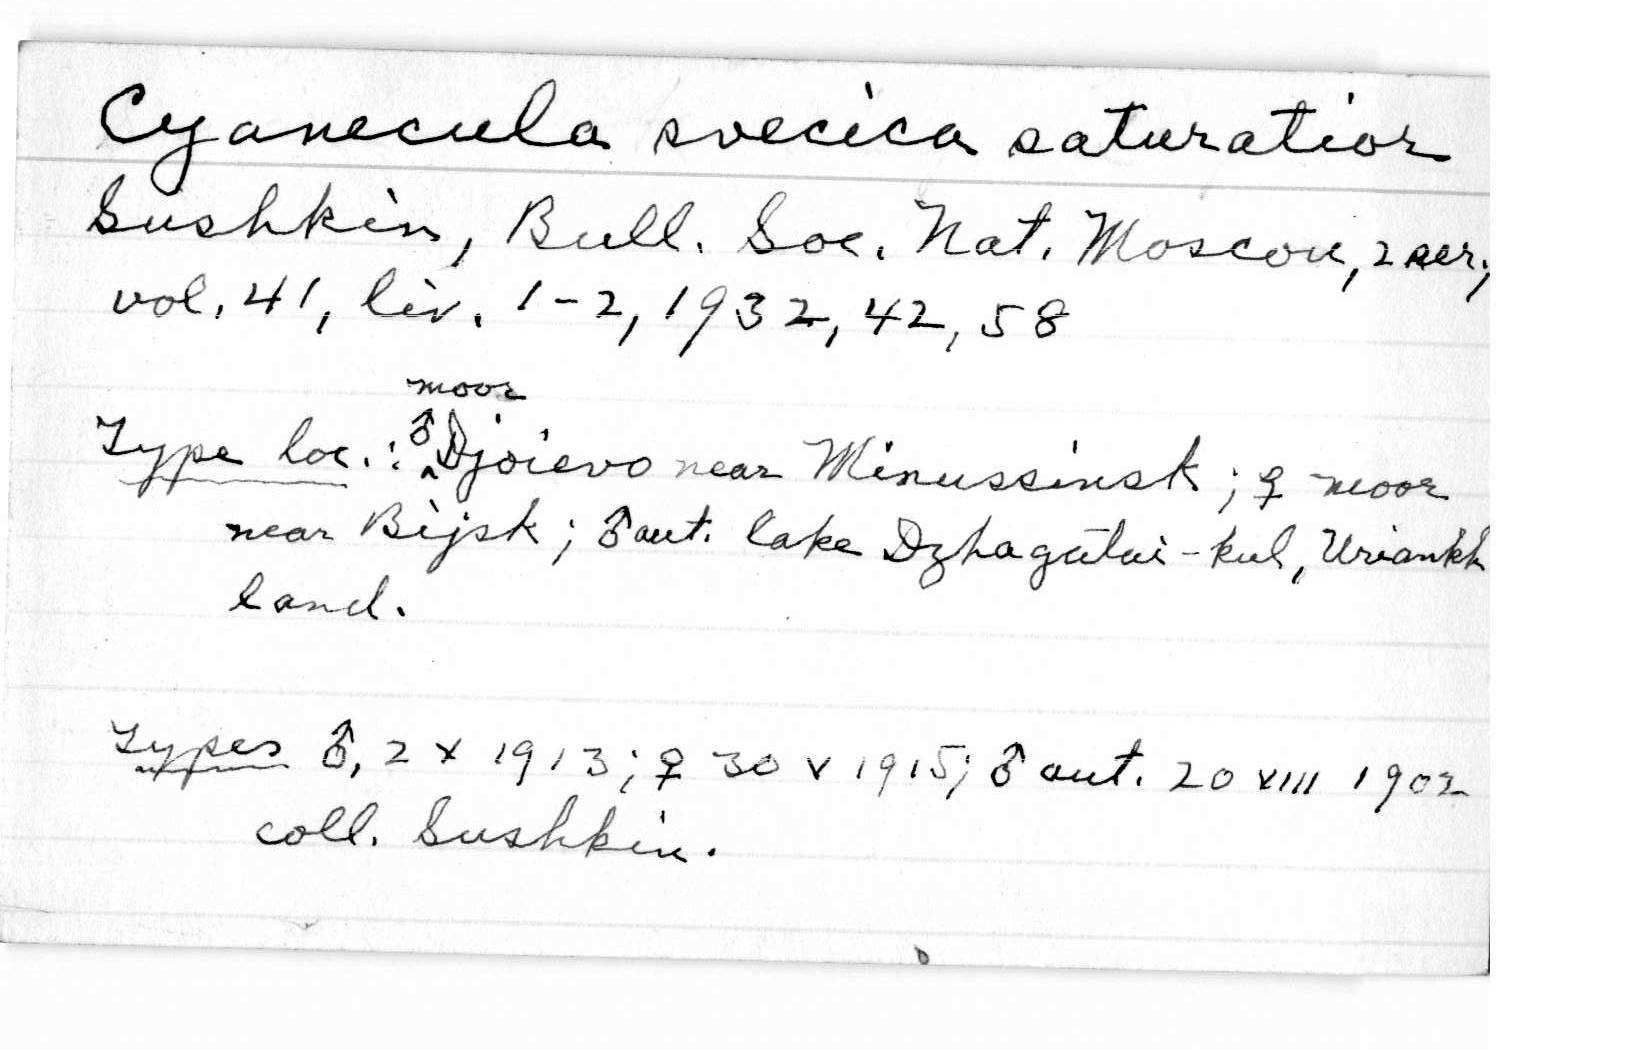 Cyanecula svecica saturatior
Sushkin, Bull. Soc. Nat. Moscou, 2 ser.,
vol. 41, liv. 1-2, 1932, 42, 58
moor
Type loc.: ♂ ^ Djoievo near Minussinsk; ♀ moor
near Bijsk; ♂ aut. lake Dzhagatai-kul, Uriankh
land.
Types ♂, 2 X 1913; ♀ 30 V 1915; ♂ aut. 20 XIII 1902
coll. Sushkin.